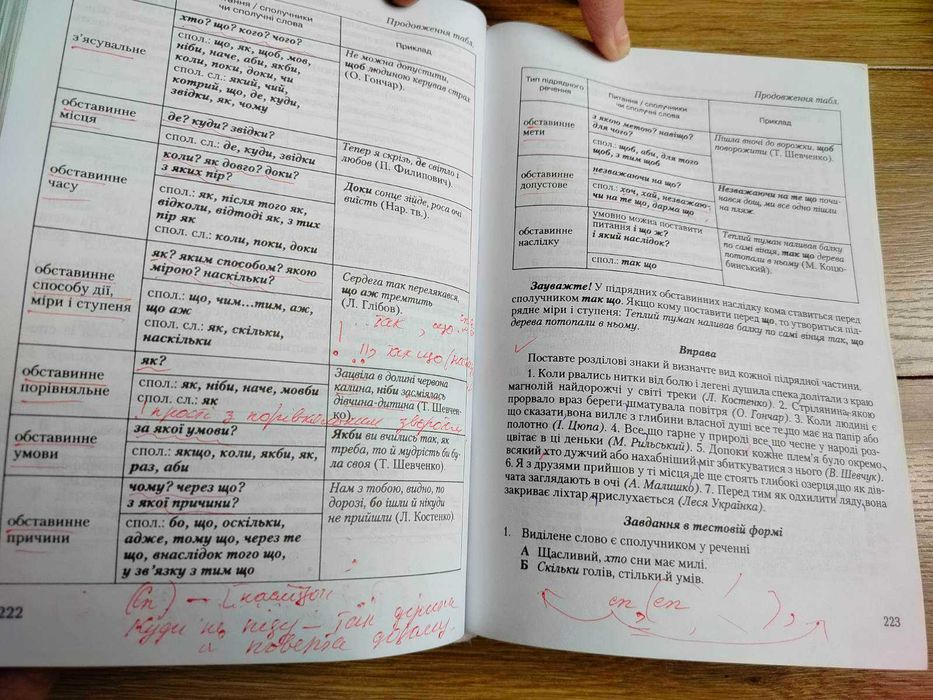 Продовження табл.
питання / сполучники
чи сполучні слова
Приклад
з'ясувальне
хто? що? кого? чого?
спол.: що, як, щоб, мов,
ніби, наче, аби, якби,
коли, поки, доки, чи
спол. сл.: який, чий,
котрий, що, де, куди,
звідки, як, чому
Не можна допустити,
щоб людиною керував страх
(О. Гончар).
обставинне
місця
де? куди? звідки?
спол. сл.: де, куди, звідки
Тепер я скрізь, де світло і
любов (П. Филипович).
обставинне
часу
коли? як довго? доки?
з яких пір?
спол.: як, після того як,
відколи, відтоді як, з тих
пір як
спол. сл.: коли, поки, доки
Доки сонце зійде, роса очі
виїсть (Нар. тв.).
обставинне
способу дії,
міри і ступеня
як? яким способом? якою
мірою? наскільки?
спол.: що, чим...тим, аж,
що аж
спол. сл.: як, скільки,
наскільки
Сердега так перелякався,
що аж тремтить
(Л. Глібов).
так , що
так що
обставинне
порівняльне
як?
спол.: як, ніби, наче, мовби
спол. сл.: як
Зацвіла в долині червона
калина, ніби засміялась
дівчина-дитина (Т. Шевчен-
ко).
! прості з порівняльним зворотом
обставинне
умови
за якої умови?
спол.: якщо, коли, якби, як,
раз, аби
Якби ви вчились так, як
треба, то й мудрість би бу-
ла своя (Т. Шевченко).
обставинне
причини
чому? через що?
з якої причини?
спол.: бо, що, оскільки,
адже, тому що, через те
що, внаслідок того що,
у зв'язку з тим що
Нам з тобою, видно, по
дорозі, бо ішли й нікуди
не прийшли (Л. Костенко).
222
Продовження табл.
Тип підрядного
речення
Питання / сполучники
чи сполучні слова
Приклад
обставинне
мети
з якою метою? навіщо?
для чого?
спол.: щоб, аби, для того
щоб, з тим щоб
Пішла вночі до ворожки, щоб
поворожити (Т. Шевченко).
обставинне
допустове
незважаючи на що?
спол.: хоч, хай, незважаю-
чи на те що, дарма що
Незважаючи на те що почи-
нався дощ, ми все одно пішли
на пляж.
обставинне
наслідку
умовно можна поставити
питання і що ж?
і який наслідок?
спол.: так що
Теплий туман наливав балку
по самі вінця, так що дерева
потопали в ньому (М. Коцю-
бинський).
Зауважте! У підрядних обставинних наслідку кома ставиться перед
сполучником так що. Якщо кому поставити перед що, то утвориться під-
рядне міри і ступеня: Теплий туман наливав балку по самі вінця так, що
дерева потопали в ньому.
Вправа
Поставте розділові знаки й визначте вид кожної підрядної частини.
1. Коли рвались нитки від болю і легені душила спека долітали з краю
магнолій найдорожчі у світі треки (Л. Костенко). 2. Стрілянина якою
прорвало враз береги шматувала повітря (О. Гончар). 3. Коли людині є
що сказати вона виллє з глибини власної душі все те що має на папір або
полотно (І. Цюпа). 4. Все що гарне у природі все що чесне у народі роз-
цвітає в ці деньки (М. Рильський). 5. Допоки кожне плем'я було окремо
всякий хто дужчий або нахабніший міг збиткуватися з нього (В. Шевчук).
6. Я з друзями прийшов у ті місця де ще стоять глибокі озерця що як дів-
чата заглядають в очі (А. Малишко). 7. Перед тим як одхилити ляду вона
закриває ліхтар прислухається (Леся Українка).
Завдання в тестовій формі
1. Виділене слово є сполучником у реченні
А Щасливий, хто сни має милі.
Б Скільки голів, стільки й умів.
223